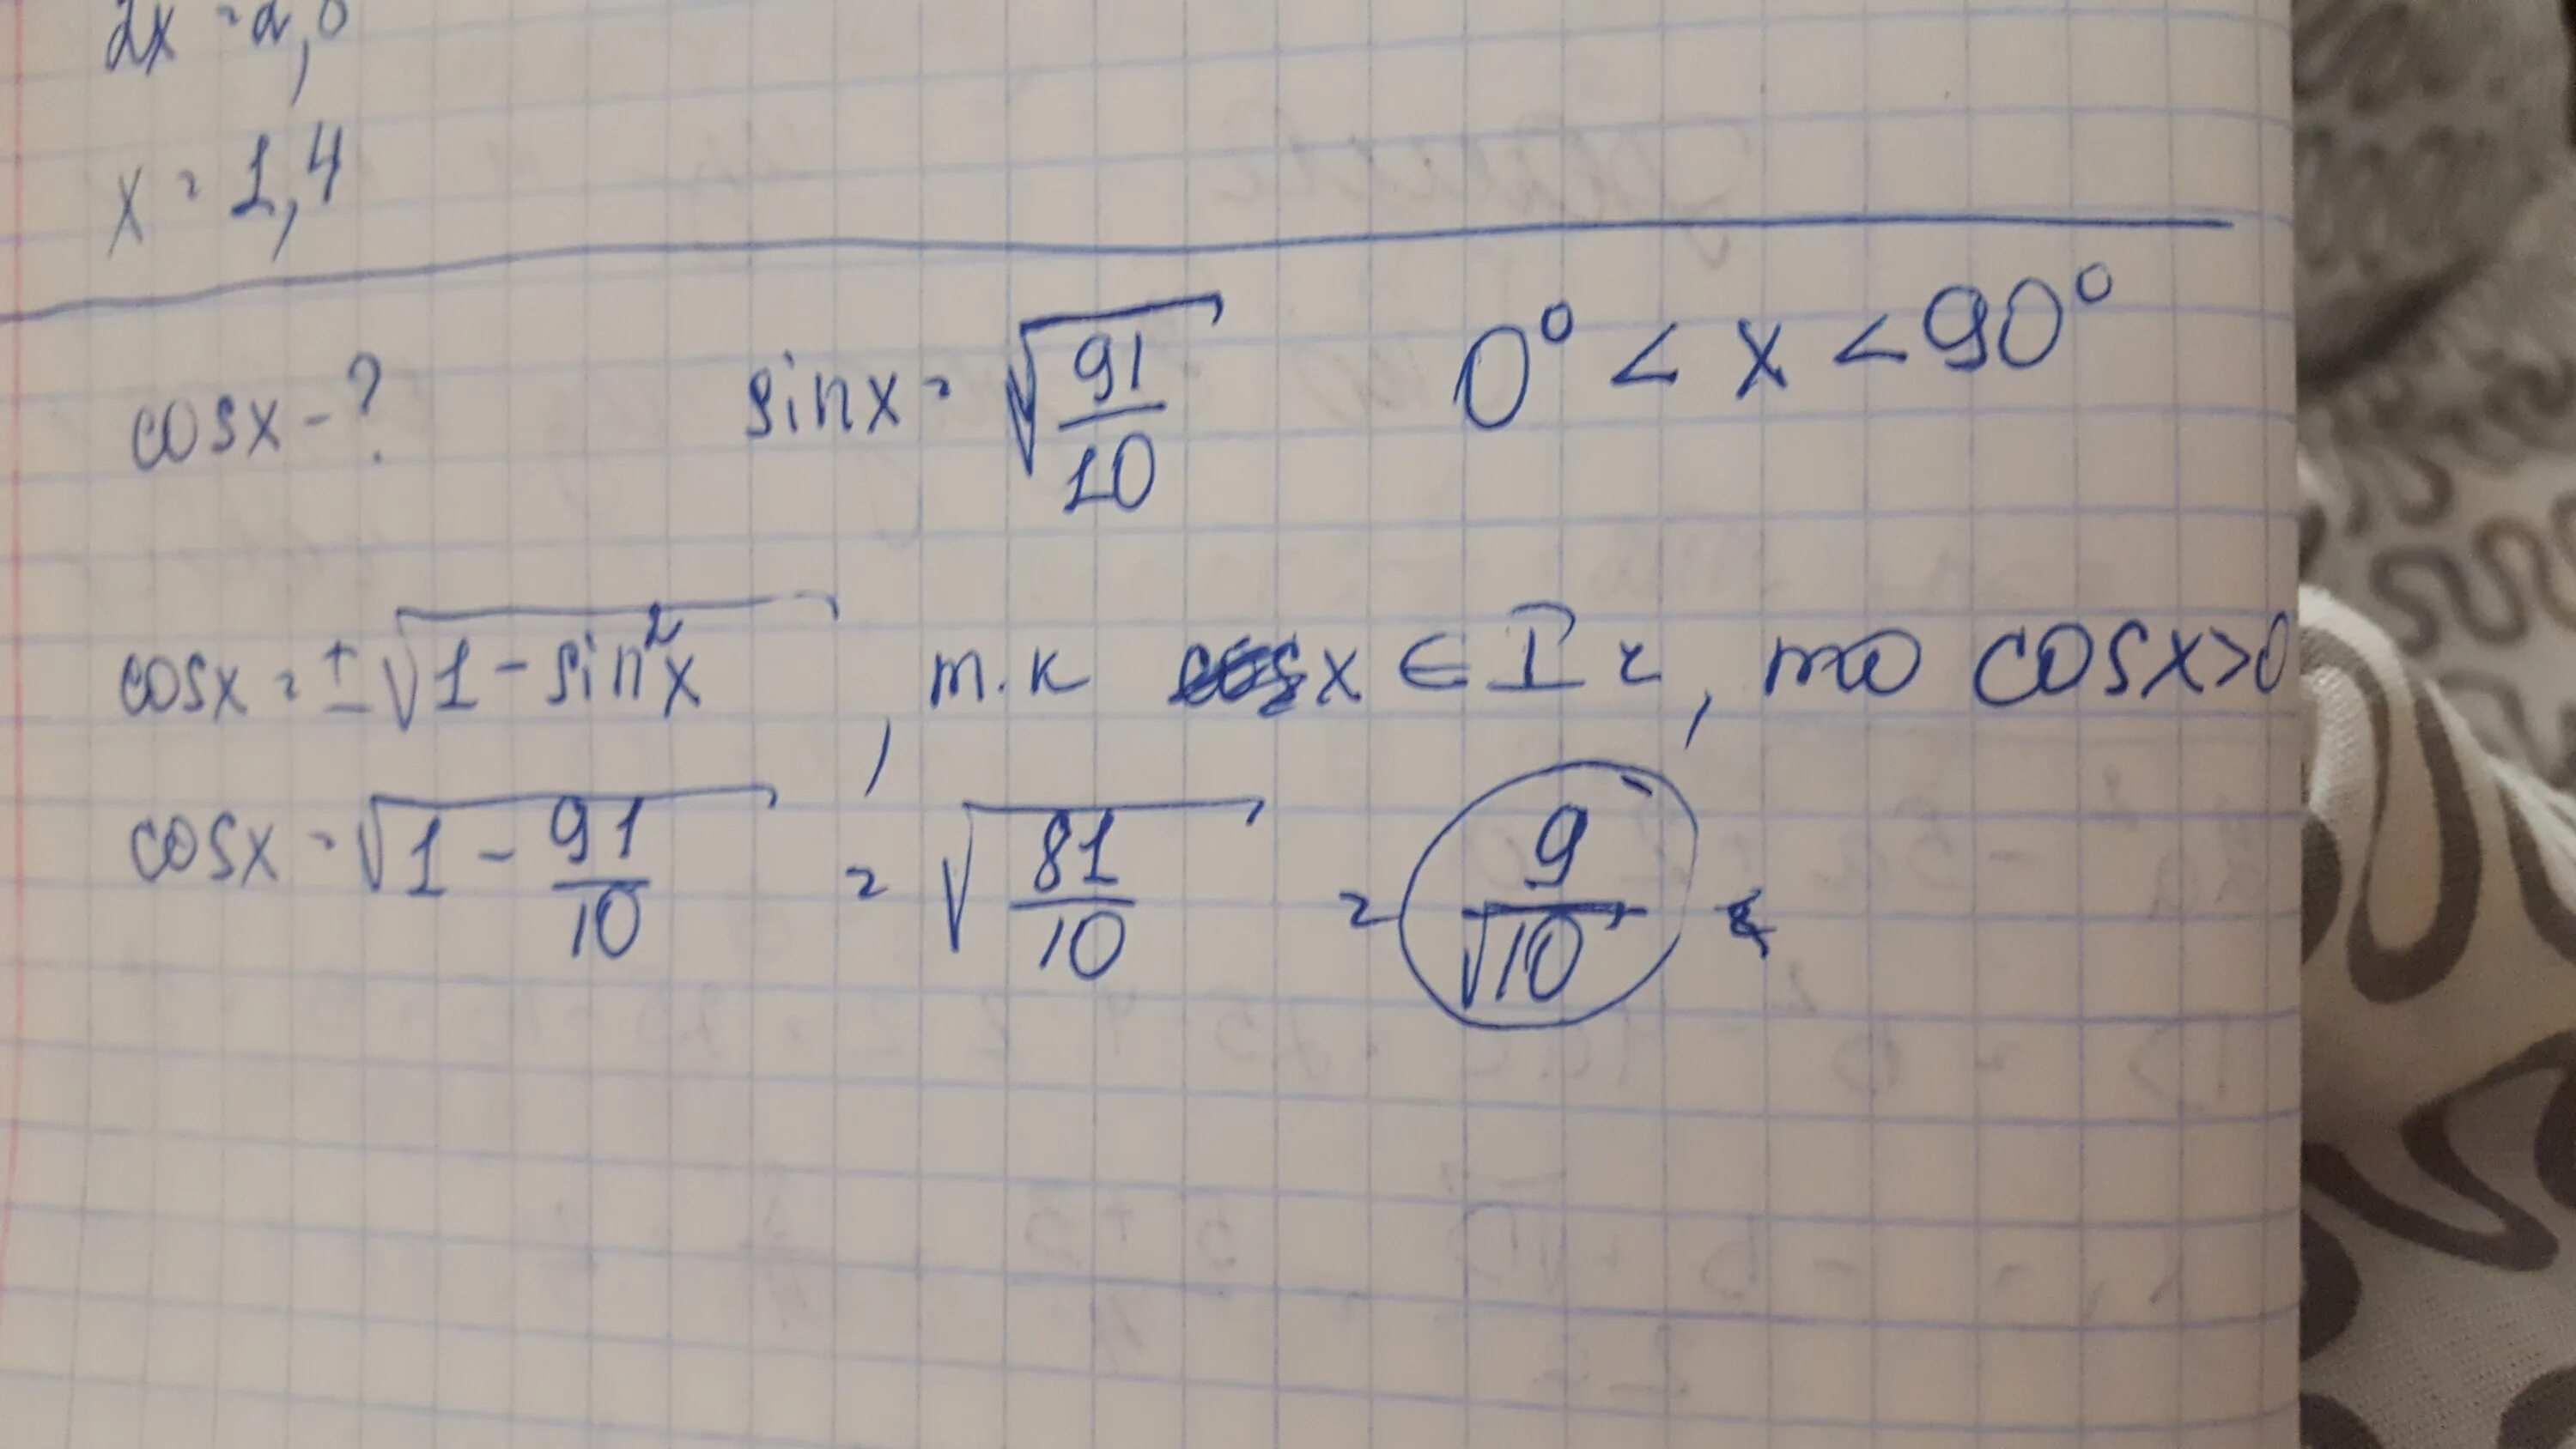 x = 1,4
cosx - ? sinx = √(91/10) 0° < x < 90°
cosx = ±√(1 - sin²x), т.к x ∈ I г, то cosx>0
cosx = √(1 - 91/10) = √(81/10) = 9/√10